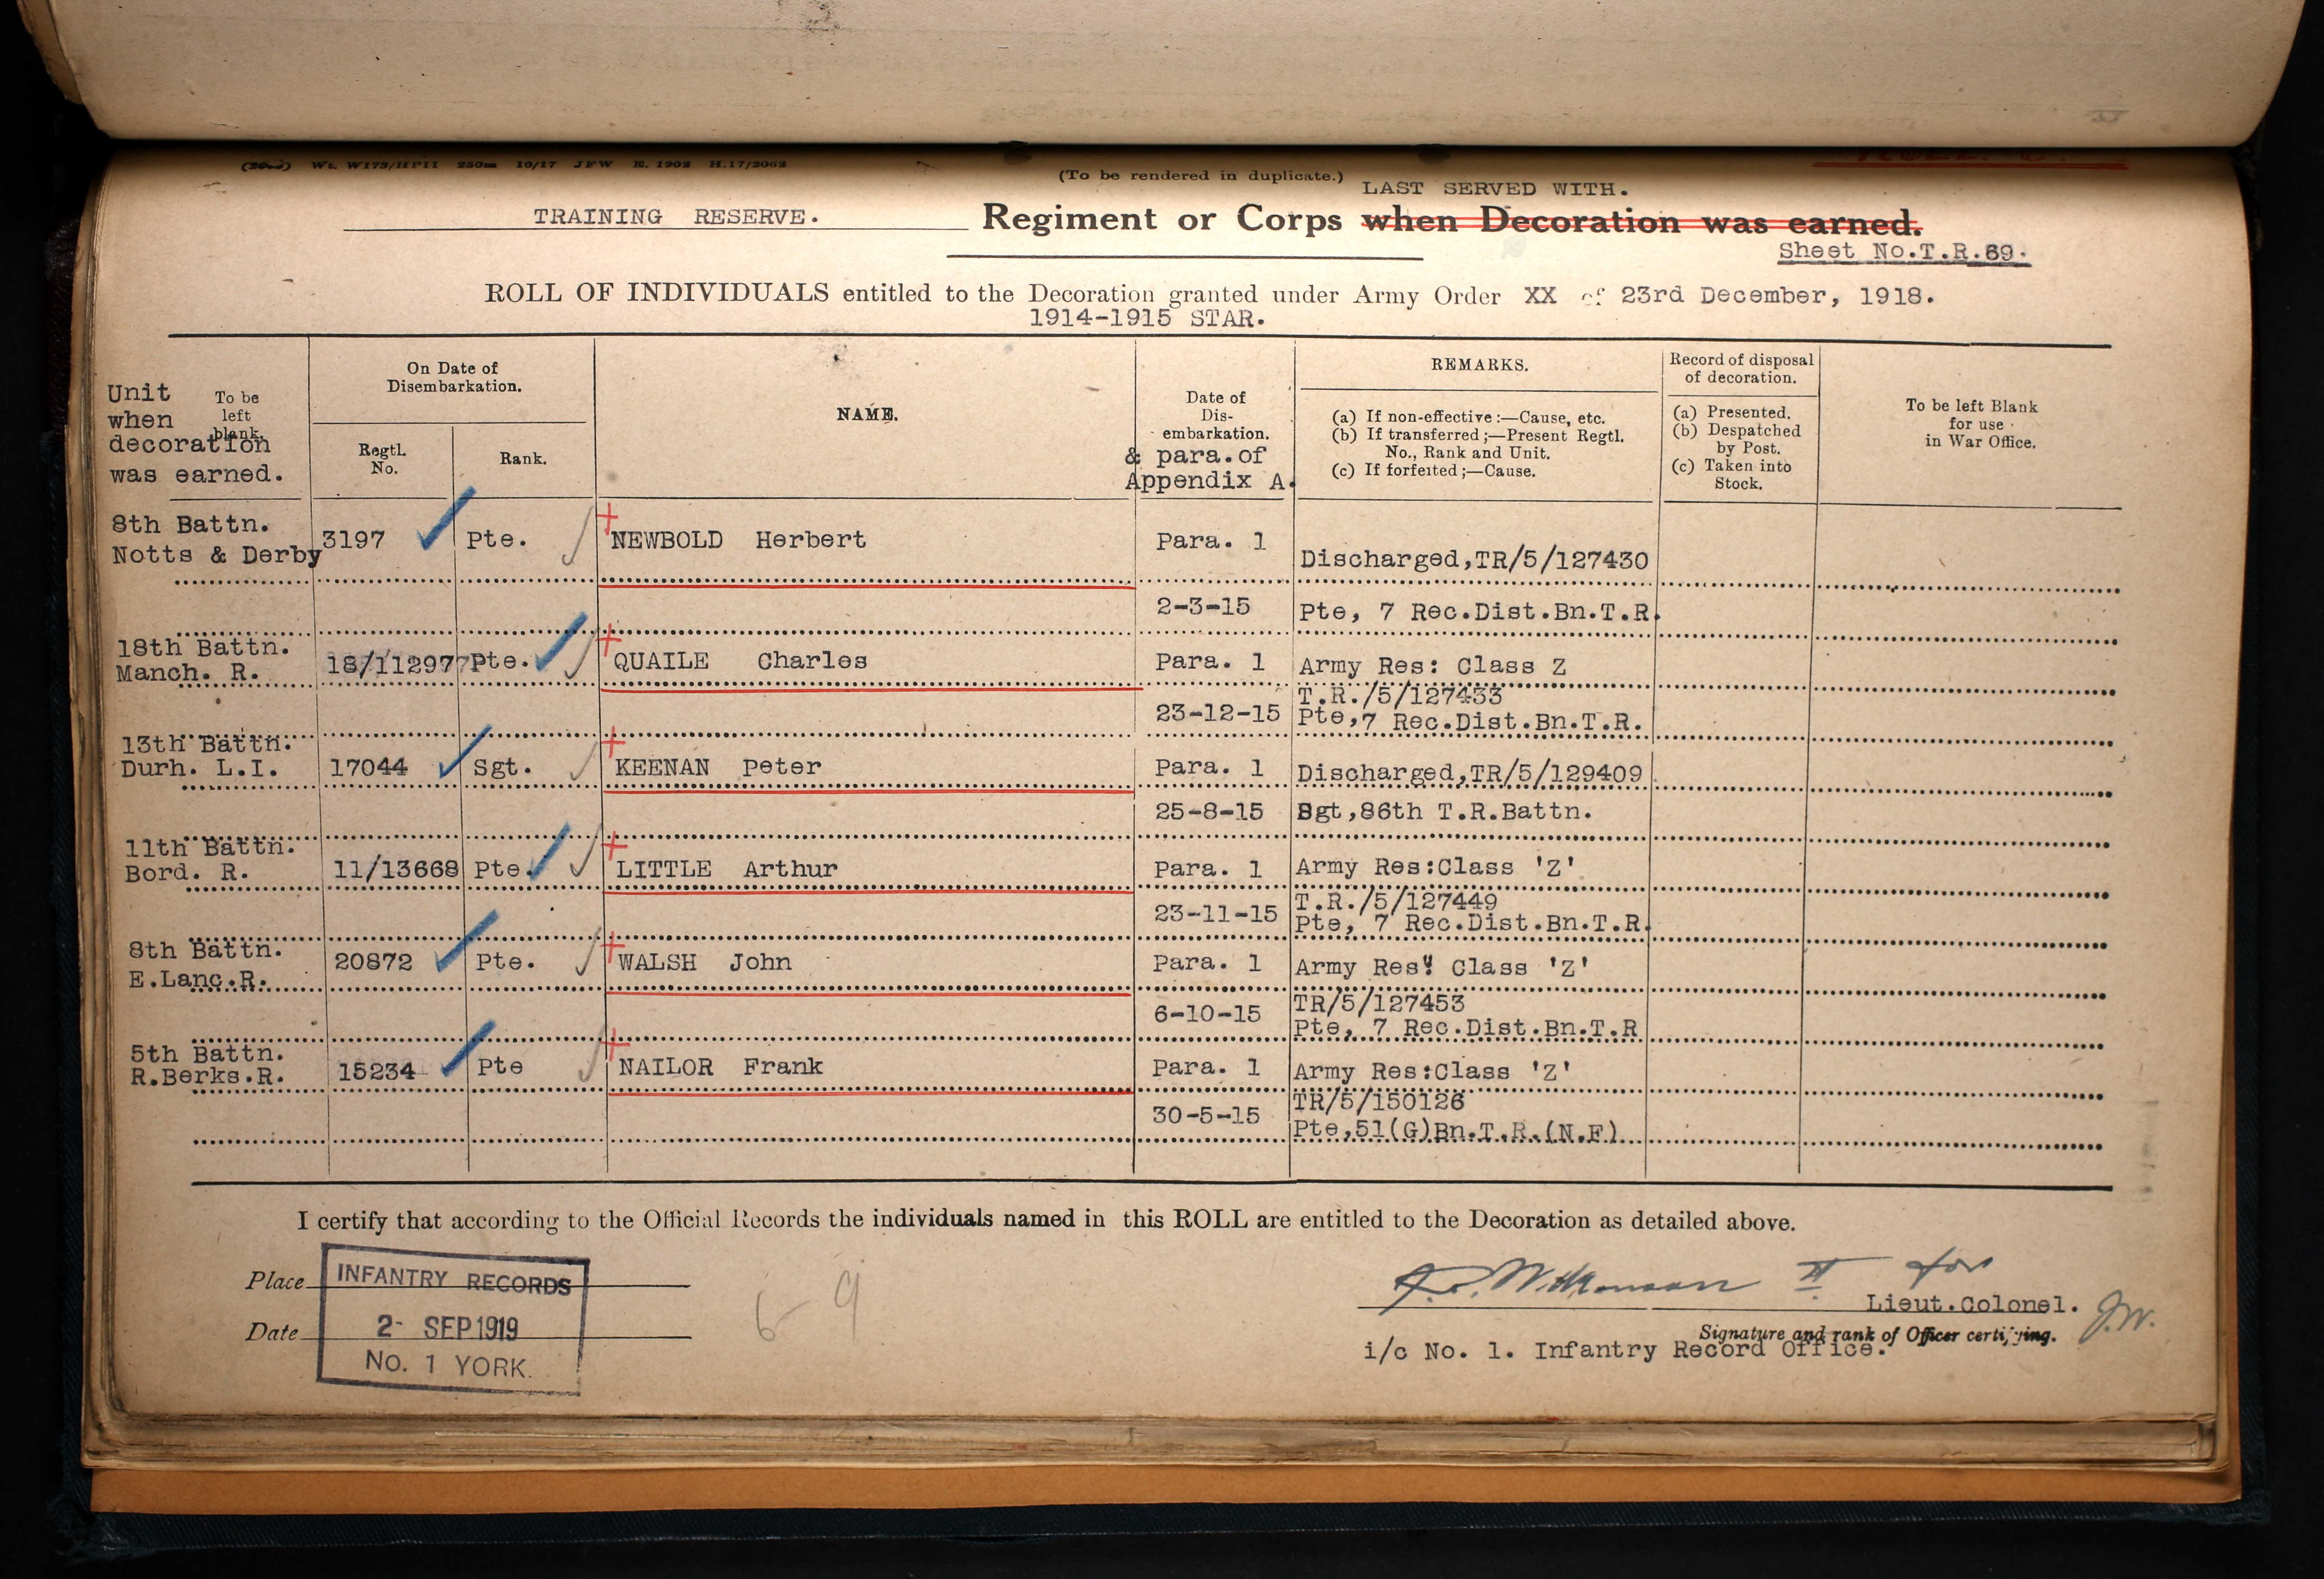 (To be rendered in duplicate.)
LAST SERVED WITH.
TRAINING RESERVE. Regiment or Corps when Decoration was earned.
Sheet No.T.R.69.
ROLL OF INDIVIDUALS entitled to the Decoration granted under Army Order XX of 23rd December, 1918.
1914-1915 STAR.
Unit when decoration was earned.
To be left blank.
On Date of Disembarkation.
Regtl. No.
Rank.
NAME.
Date of Dis-embarkation.
& para.of Appendix A.
REMARKS.
(a) If non-effective:—Cause, etc.
(b) If transferred;—Present Regtl. No., Rank and Unit.
(c) If forfeited;—Cause.
Record of disposal of decoration.
(a) Presented.
(b) Despatched by Post.
(c) Taken into Stock.
To be left Blank for use in War Office.
8th Battn.
Notts & Derby 3197 Pte. NEWBOLD Herbert Para. 1 Discharged,TR/5/127430
2-3-15 Pte, 7 Rec.Dist.Bn.T.R.
18th Battn.
Manch. R. Pte. QUAILE Charles Para. 1 Army Res: Class Z
T.R./5/127433
23-12-15 Pte,7 Rec.Dist.Bn.T.R.
13th Battn.
Durh. L.I. 17044 Sgt. KEENAN Peter Para. 1 Discharged,TR/5/129409
25-8-15 Sgt,86th T.R.Battn.
11th Battn.
Bord. R. 11/13668 Pte. LITTLE Arthur Para. 1 Army Res:Class 'Z'
T.R./5/127449
23-11-15 Pte, 7 Rec.Dist.Bn.T.R.
8th Battn.
E.Lanc.R. 20872 Pte. WALSH John Para. 1 Army Res: Class 'Z'
TR/5/127453
6-10-15 Pte, 7 Rec.Dist.Bn.T.R
5th Battn.
R.Berks.R. 15234 Pte NAILOR Frank Para. 1 Army Res:Class 'Z'
TR/5/150126
30-5-15 Pte,51(G)Bn.T.R.(N.F)
I certify that according to the Official Records the individuals named in this ROLL are entitled to the Decoration as detailed above.
Place
INFANTRY RECORDS
Date
2- SEP 1919
No. 1 YORK.
69
Wilkinson Lt for
Lieut.Colonel.
J.W.
Signature and rank of Officer certifying.
i/c No. 1. Infantry Record Office.